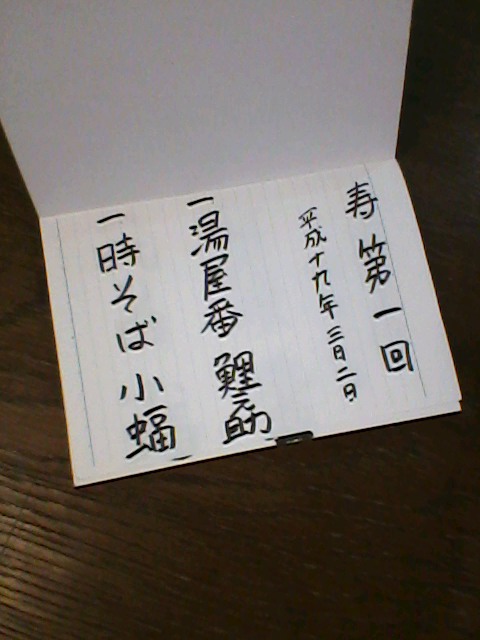 寿 第一回
平成十九年 三日二日
一 湯屋番 鯉助
一 時そば 小蝠